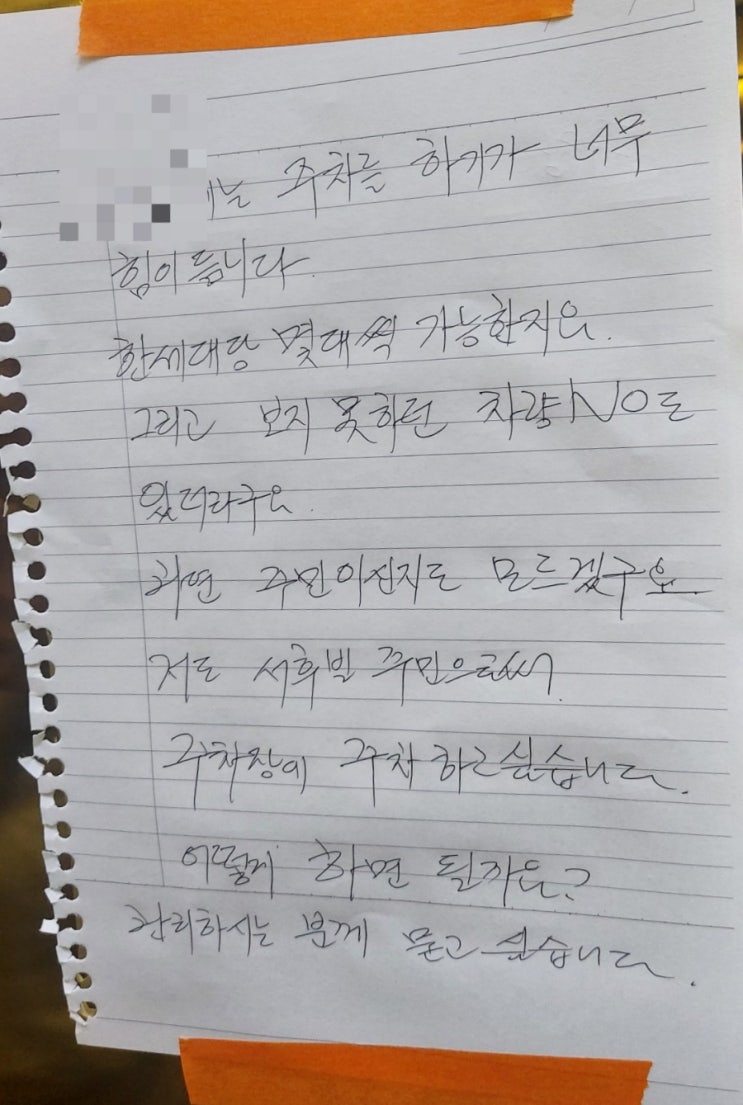 는 주차를 하기가 너무
힘이듭니다
한세대당 몇대씩 가능한지요.
그리고 보지 못하던 차량NO도
있더라구요.
과연 주민이신지도 모르겠구요
저도 서휘빌 주민으로써
주차장에 주차 하고싶습니다.
어떻게 하면 될까요?
관리하시는 분께 묻고 싶습니다.